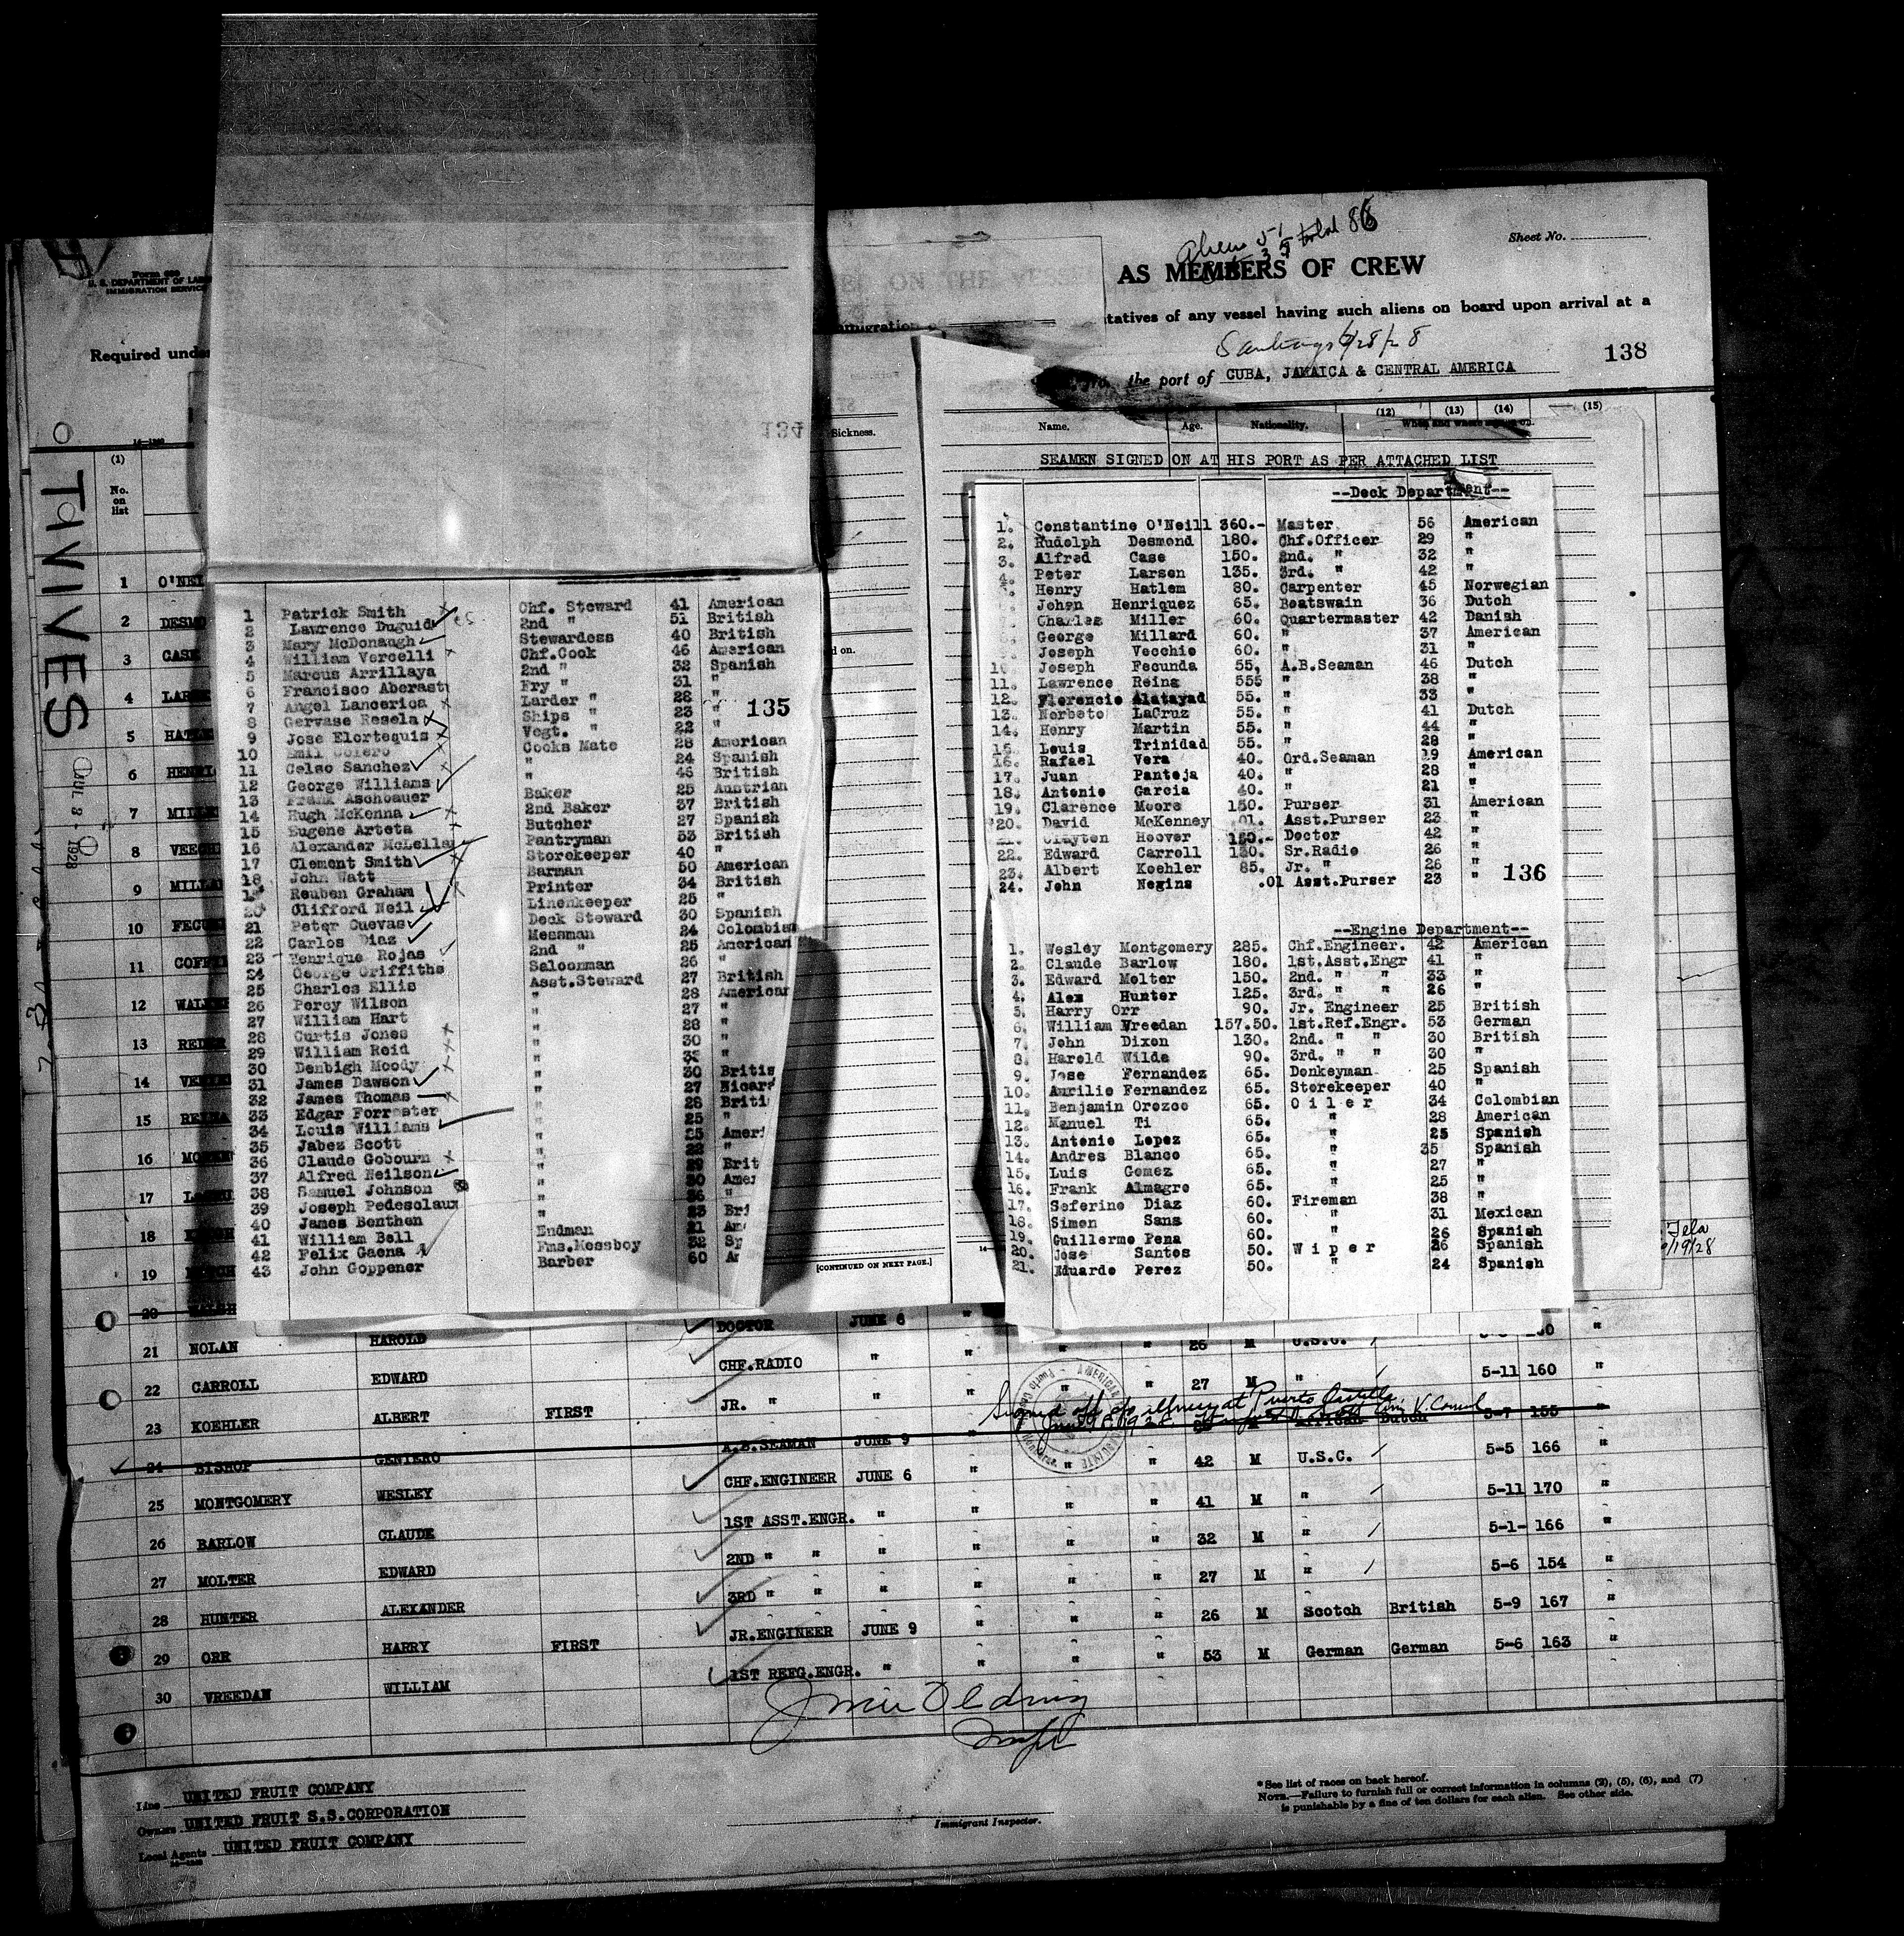 Aliens 51 total 86
35
Sheet No.
AS MEMBERS OF CREW
Form 689
U. S. DEPARTMENT OF LAB
IMMIGRATION SERVICE
tatives of any vessel having such aliens on board upon arrival at a
Required unde
Santiago 6/28/28
138
the port of CUBA, JAMAICA & CENTRAL AMERICA
134
Sickness.
Name. Age. Nationality. (12) (13) (14) (15)
When and where signed on.
SEAMEN SIGNED ON AT HIS PORT AS PER ATTACHED LIST
TIVIVES
JUL 3 - 1928
(1)
No.
on
list
1 O'NEI
2 DESMO
3 CASE
4 LARSE
5 HATLE
6 HENRI
7 MILLE
8 VECCH
9 MILLA
10 FECUN
11 COFFE
12 WALKE
13 REDE
14
15 REINA
16
17
18
19
1 Patrick Smith Chf. Steward 41 American
2 Lawrence Duguid 2nd " 51 British
3 Mary McDonaugh Stewardess 40 British
4 William Vercelli Chf.Cook 46 American
5 Marcus Arrillaya 2nd " 32 Spanish
6 Francisco Aberasti Fry " 31 "
7 Angel Lancerica Larder " 28 "
8 Gervase Resela Ships " 23 "
9 Jose Elortequis Vegt. " 22 "
135
10 Emil Sotero Cooks Mate 28 American
11 Celso Sanchez " 24 Spanish
12 George Williams " 46 British
13 Frank Aschoauer Baker 25 Austrian
14 Hugh McKenna 2nd Baker 37 British
15 Eugene Arteta Butcher 27 Spanish
16 Alexander McLella Pantryman 53 British
17 Clement Smith Storekeeper 40 "
18 John Watt Barman 50 American
19 Reuben Graham Printer 34 British
20 Clifford Neil Linenkeeper 25 "
21 Peter Cuevas Deck Steward 30 Spanish
22 Carlos Diaz Messman 24 Colombian
23 Henrique Rojas 2nd " 25 American
24 George Griffiths Saloonman 26 "
25 Charles Ellis Asst.Steward 27 British
26 Percy Wilson " 28 American
27 William Hart " 27 "
28 Curtis Jones " 28 "
29 William Reid " 30 "
30 Denbigh Moody " "
31 James Dawson " 30 Britis
32 James Thomas " 27 Nicar
33 Edgar Forrester " 28 Briti
34 Louis Williams " 25 "
35 Jabez Scott " 25 Ameri
36 Claude Gobourn " 22 "
37 Alfred Neilson " 29 Brit
38 Samuel Johnson " 30 Amer
39 Joseph Pedesclaux " 36 "
40 James Benthen " 23 Bri
41 William Bell Endman 21 Am
42 Felix Gaena Fms.Messboy 32 Sp
43 John Goppener Barber 60 A
[CONTINUED ON NEXT PAGE.]
--Deck Department--
1. Constantine O'Neill 360.- Master 56 American
2. Rudolph Desmond 180. Chf.Officer 29 "
3. Alfred Case 150. 2nd. " 32 "
4. Peter Larsen 135. 3rd. " 42 "
Henry Hatlem 80. Carpenter 45 Norwegian
Johan Henriquez 65. Boatswain 36 Dutch
Charles Miller 60. Quartermaster 42 Danish
George Millard 60. " 37 American
Joseph Vecchio 60. " 31 "
10 Joseph Fecunda 55. A.B.Seaman 46 Dutch
11. Lawrence Reina 555 " 38 "
12. Florencio Alatayad 55. " 33 "
13. Norbeto LaCruz 55. " 41 Dutch
14. Henry Martin 55. " 44 "
15. Louis Trinidad 55. " 28 "
16. Rafael Vera 40. Ord.Seaman 19 American
17. Juan Pantoja 40. " 28 "
18. Antonio Garcia 40. " 21 "
19. Clarence Moore 150. Purser 31 American
20. David McKenney .01. Asst.Purser 23 "
21. Clayton Hoover 150.- Doctor 42 "
22. Edward Carroll 130. Sr.Radio 26 "
23. Albert Koehler 85. Jr. " 26 "
24. John Negins .01 Asst.Purser 23 "
136
--Engine Department--
1. Wesley Montgomery 285. Chf.Engineer. 42 American
2. Claude Barlow 180. 1st.Asst.Engr 41 "
3. Edward Molter 150. 2nd. " " 33 "
4. Alex Hunter 125. 3rd. " " 26 "
5. Harry Orr 90. Jr. Engineer 25 British
6. William Vreedan 157.50. 1st.Ref.Engr. 53 German
7. John Dixon 130. 2nd. " " 30 British
8. Harold Wilde 90. 3rd. " " 30 "
9. Jose Fernandez 65. Donkeyman 25 Spanish
10. Aurilio Fernandez 65. Storekeeper 40 "
11. Benjamin Orozco 65. Oiler 34 Colombian
12. Manuel Ti 65. " 28 American
13. Antonio Lopez 65. " 25 Spanish
14. Andres Blanco 65. " 35 Spanish
15. Luis Gomez 65. " 27 "
16. Frank Almagro 65. " 25 "
17. Seferino Diaz 60. Fireman 38 "
18. Simon Sans 60. " 31 Mexican
19. Guillermo Pena 60. " 26 Spanish
20. Jose Santos 50. Wiper 26 Spanish
21. Eduardo Perez 50. " 24 Spanish
Tela
6/19/28
20 WALSH HAROLD DOCTOR JUNE 6 "
21 NOLAN EDWARD CHF.RADIO " " " " 26 M U.S.C. "
22 CARROLL ALBERT FIRST JR. " " " " " 27 M " 5-11 160 "
23 KOEHLER
Signed off a/c illness at Puerto Castilla
V. Consul
24 BISHOP GENIERO A.B.SEAMAN JUNE 9 African Dutch 5-7 155 "
25 MONTGOMERY WESLEY CHF.ENGINEER JUNE 6 " " " 42 M U.S.C. 5-5 166 "
26 BARLOW CLAUDE 1ST ASST.ENGR. " " " " 41 M " 5-11 170 "
27 MOLTER EDWARD 2ND " " " " " " 32 M " 5-1- 166 "
28 HUNTER ALEXANDER 3RD " " " " " " 27 M " 5-6 154 "
29 ORR HARRY FIRST JR.ENGINEER JUNE 9 " " " 26 M Scotch British 5-9 167 "
30 VREEDAN WILLIAM 1ST REFG.ENGR. " " " " 53 M German German 5-6 163 "
Line UNITED FRUIT COMPANY
Owners UNITED FRUIT S.S.CORPORATION
Local Agents UNITED FRUIT COMPANY
Immigrant Inspector.
* See list of races on back hereof.
NOTE.—Failure to furnish full or correct information in columns (2), (5), (6), and (7)
is punishable by a fine of ten dollars for each alien. See other side.